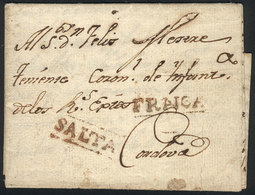 Al S.r d.n Felis Mesere
Teniente Coron.l de Ynfant.a
de los R.s Exto.s FRANCA
SALTA
Cordova